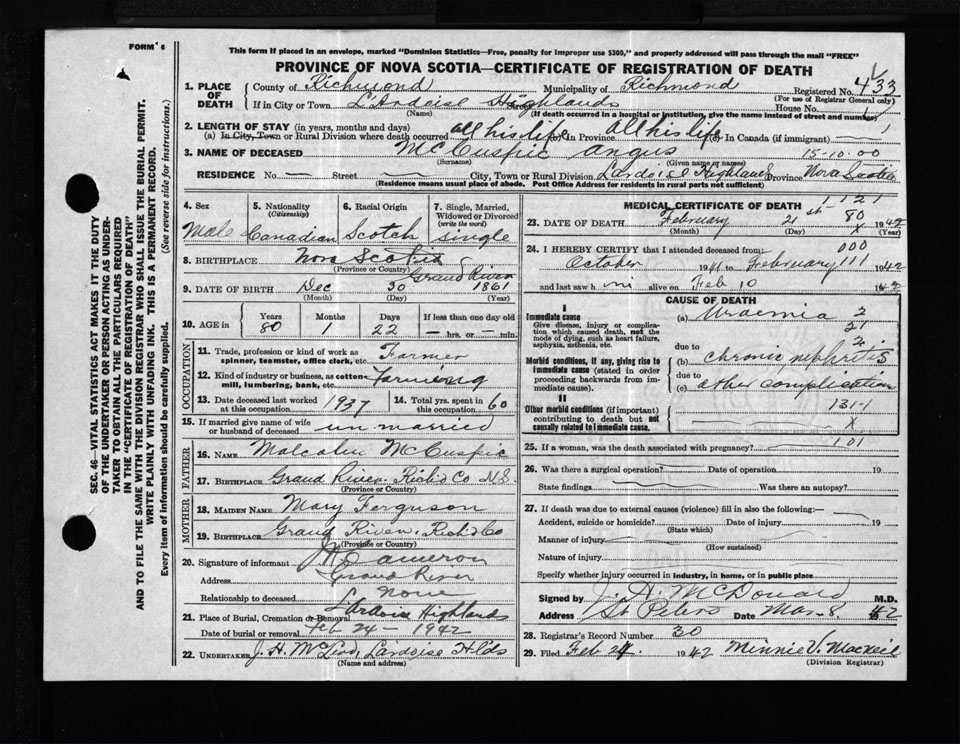 FORM 6
This form if placed in an envelope, marked "Dominion Statistics—Free, penalty for improper use $300," and properly addressed will pass through the mail "FREE"
PROVINCE OF NOVA SCOTIA—CERTIFICATE OF REGISTRATION OF DEATH
1. PLACE OF DEATH { County of Richmond Municipality of Richmond Registered No. 433
(For use of Registrar General only)
If in City or Town L'Ardoise Highlands Street House No.
(Name) (If death occurred in a hospital or institution, give the name instead of street and number)
2. LENGTH OF STAY (in years, months and days)
(a) In City, Town or Rural Division where death occurred all his life (b) In Province all his life (c) In Canada (if immigrant)
3. NAME OF DECEASED McCuspic Angus 15-10-00
(Surname) (Given name or names)
RESIDENCE No. — Street — City, Town or Rural Division Lardoise Highlands Province Nova Scotia
(Residence means usual place of abode. Post Office Address for residents in rural parts not sufficient)
4. Sex Male
5. Nationality (Citizenship) Canadian
6. Racial Origin Scotch
7. Single, Married, Widowed or Divorced (write the word) single
8. BIRTHPLACE Nova Scotia Grand River
(Province or Country)
9. DATE OF BIRTH Dec 30 1861
(Month) (Day) (Year)
10. AGE in { Years 80 Months 1 Days 22 If less than one day old — hrs. or — min.
OCCUPATION
11. Trade, profession or kind of work as spinner, teamster, office clerk, etc. Farmer
12. Kind of industry or business, as cotton mill, lumbering, bank, etc. Farming
13. Date deceased last worked at this occupation 1937 14. Total yrs. spent in this occupation 60
15. If married give name of wife or husband of deceased un married
FATHER
16. NAME Malcolm McCuspic
17. BIRTHPLACE Grand River Rich'd Co N.S.
(Province or Country)
MOTHER
18. MAIDEN NAME Mary Ferguson
19. BIRTHPLACE Grand River, Rich'd Co
(Province or Country)
20. Signature of informant Cameron
Address Grand River
Relationship to deceased none
21. Place of Burial, Cremation or Removal Lardoise Highlands
Date of burial or removal Feb 24 - 1942
22. UNDERTAKER J. H. McLeod, Lardoise Hlds
(Name and address)
MEDICAL CERTIFICATE OF DEATH
1121
23. DATE OF DEATH February 21st 80 1942
(Month) (Day) X (Year)
24. I HEREBY CERTIFY that I attended deceased from: 000
October 1941 to February 111 1942
and last saw h im alive on Feb 10 1942
CAUSE OF DEATH
I
Immediate cause
Give disease, injury or complication which caused death, not the mode of dying, such as heart failure, asphyxia, asthenia, etc.
(a) Uraemia 2
21
due to 2
Morbid conditions, if any, giving rise to immediate cause (stated in order proceeding backwards from immediate cause).
(b) chronic nephritis
due to
(c) other complication
II
Other morbid conditions (if important) contributing to death but not causally related to immediate cause.
131-1
X
25. If a woman, was the death associated with pregnancy? 101
26. Was there a surgical operation? Date of operation 19
State findings Was there an autopsy?
27. If death was due to external causes (violence) fill in also the following:—
Accident, suicide or homicide? Date of injury 19
(State which)
Manner of injury
(How sustained)
Nature of injury
Specify whether injury occurred in industry, in home, or in public place
Signed by J. A. McDonald M.D.
Address St Peters Date Mar. 8. 42
28. Registrar's Record Number 30
29. Filed Feb 24. 1942 Minnie V. MacNeil
(Division Registrar)
SEC. 46—VITAL STATISTICS ACT MAKES IT THE DUTY
OF THE UNDERTAKER OR PERSON ACTING AS UNDERTAKER TO OBTAIN ALL THE PARTICULARS REQUIRED
IN THE "CERTIFICATE OF REGISTRATION OF DEATH"
AND TO FILE THE SAME WITH THE DIVISION REGISTRAR WHO SHALL ISSUE THE BURIAL PERMIT.
WRITE PLAINLY WITH UNFADING INK. THIS IS A PERMANENT RECORD.
Every item of information should be carefully supplied. (See reverse side for instructions.)